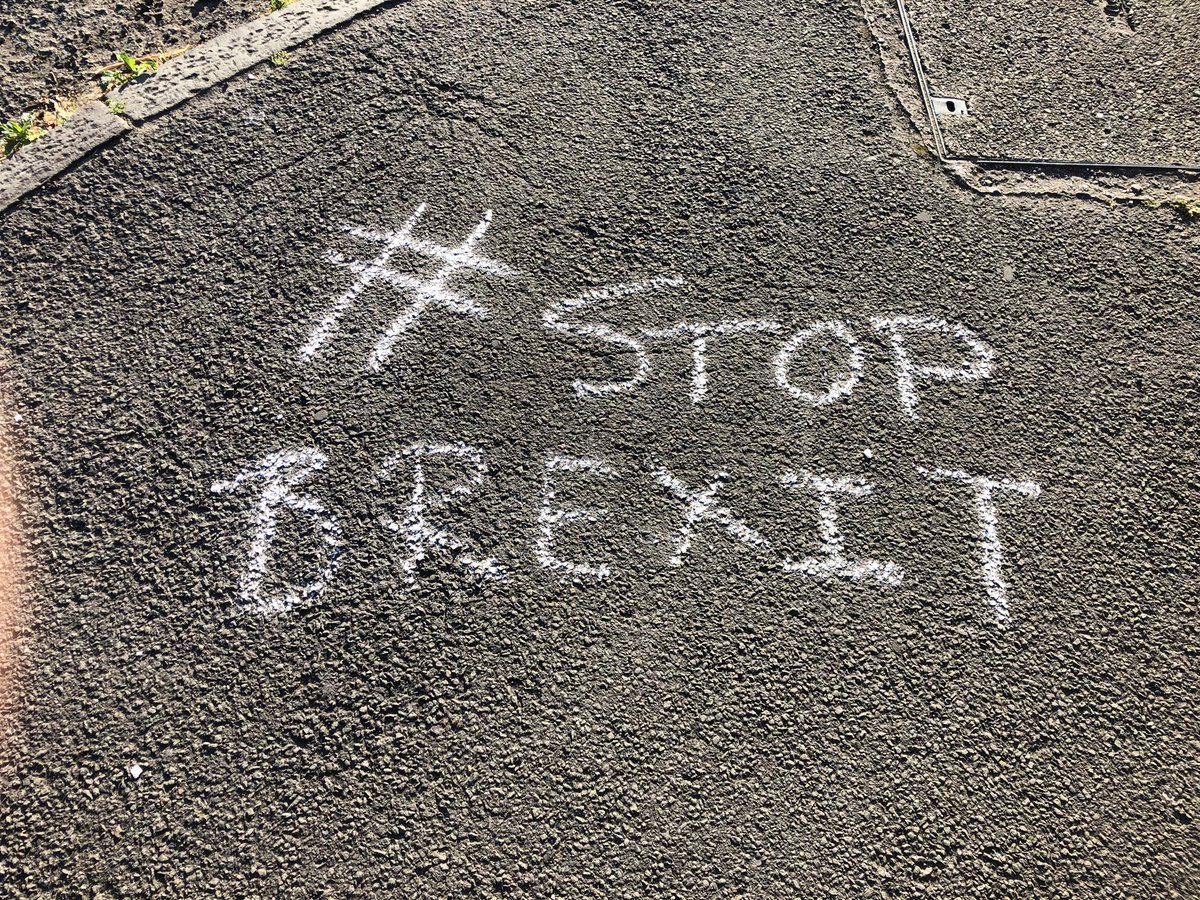 #STOP
BREXIT